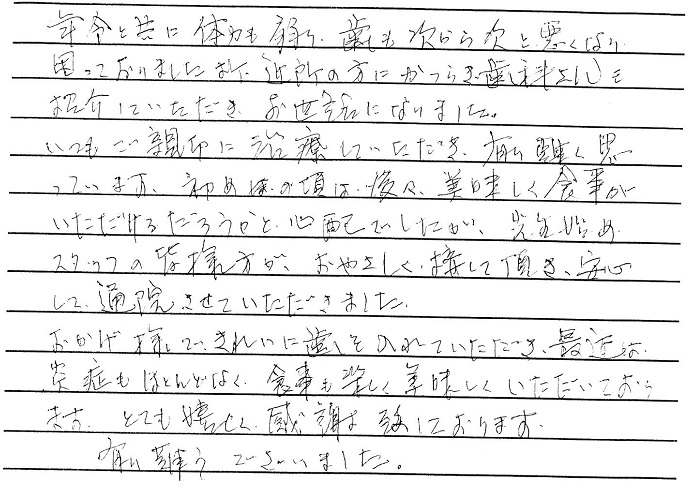 年令と共に体力も弱り、歯も次から次と悪くなり
困っておりました折、近所の方にかつらぎ歯科さんを
紹介していただき お世話になりました。
いつもご親切に治療していただき、有難く思
っています。初めの頃は、後々、美味しく食事が
いただけるだろうかと、心配でしたが、先生始め
スタッフの皆様方が、おやさしく、接して頂き、安心
して、通院させていただきました。
おかげ様で、きれいに歯を入れていただき、最近は、
炎症もほとんどなく、食事も楽しく美味しくいただいており
ます。とても嬉しく、感謝致しております。
有難うございました。